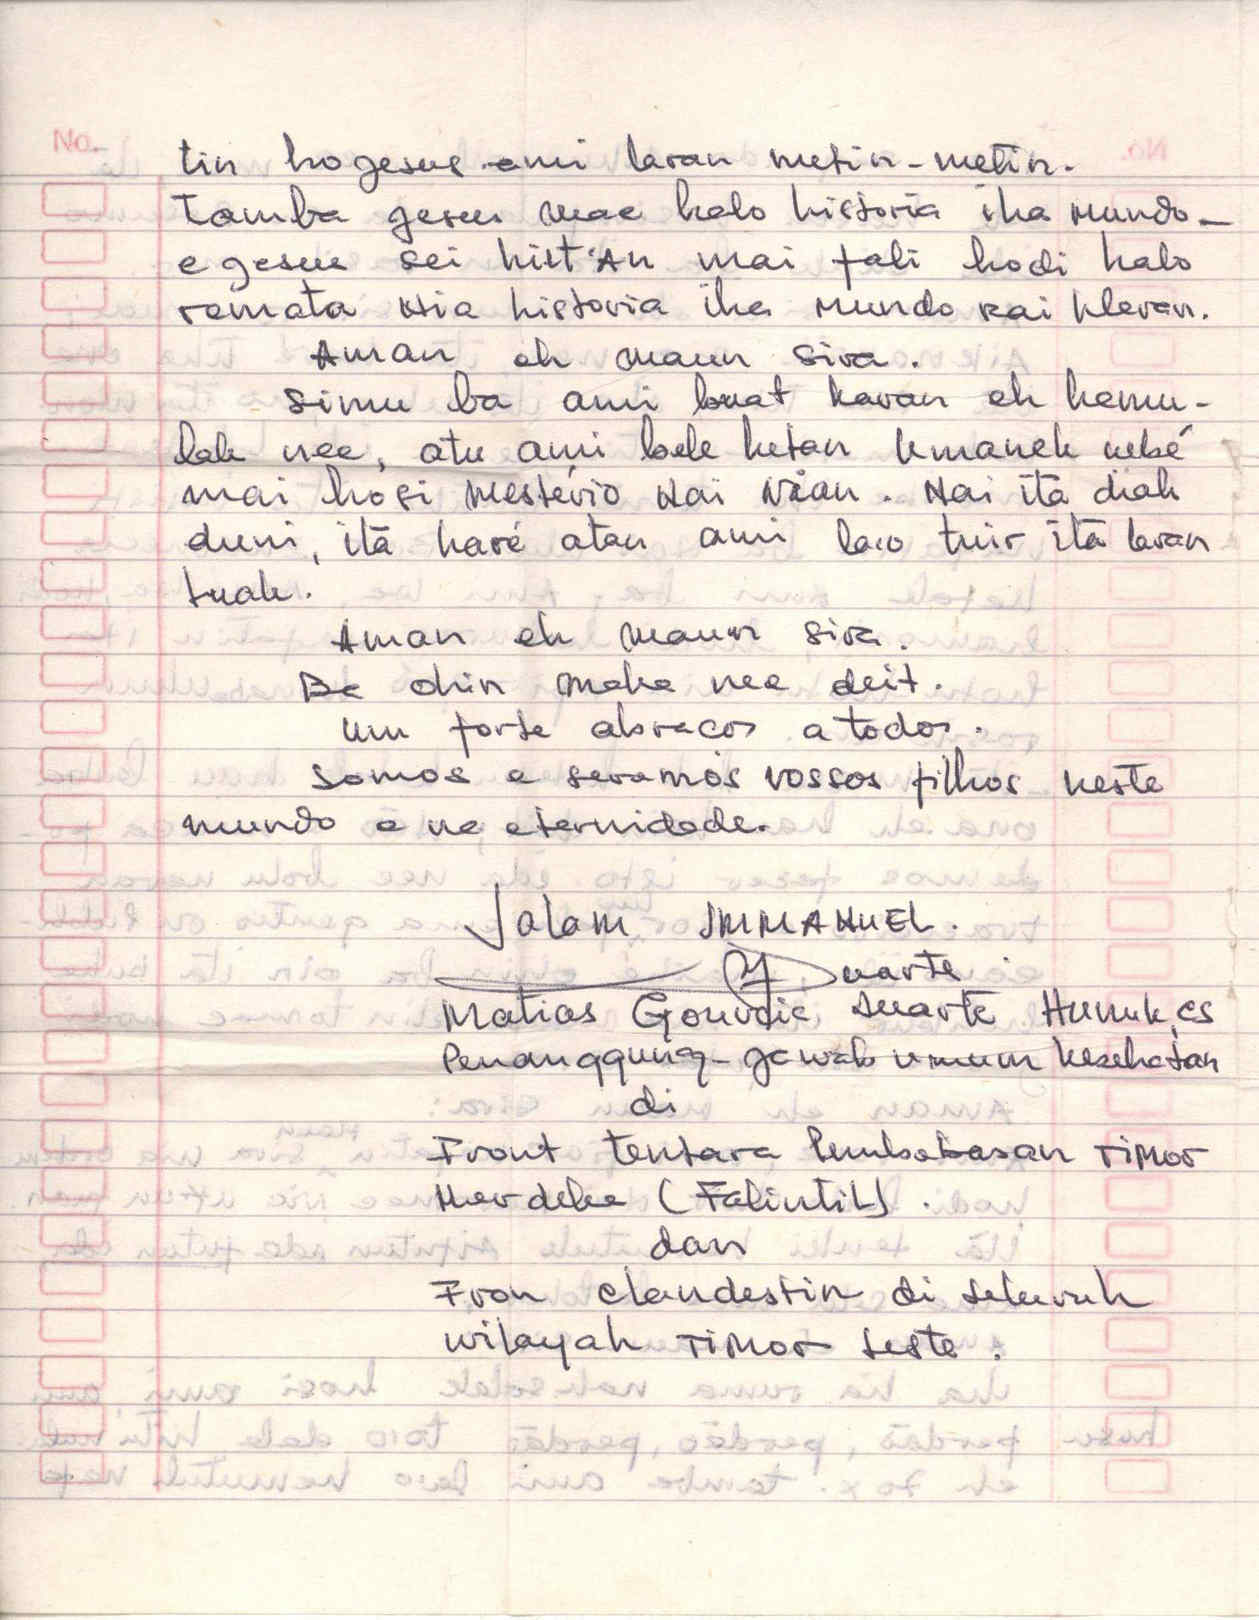 No.
tin ho gesus ami laran metin-metin.
Tamba gesus mae halo historia iha mundo
e gesus sei hist'An mai fali hodi halo
remata Nia historia iha mundo rai klaran.
Aman eh maun sira.
Simu ba ami buat karan eh hamu-
lak nee, atu ami bele hetan kmanek nebé
mai hosi Mestério Nai Nian. Nai itā diak
duni, itā haré atan ami lao tuir itā laran
luak.
Aman eh maun sira.
Ba ohin maka nee deit.
Um forte abracos a todos.
Somos e seramos vossos filhos neste
mundo e na eternidade.
Salam IMMANUEL.
Duarte
Matias Gouvéia Duarte
Penanggung-jawab umum kesehatan
di
Front tentara Pembebasan Timor
Merdeka (Falintil).
dan
Fron clandestin di seluruh
wilayah Timor Leste.